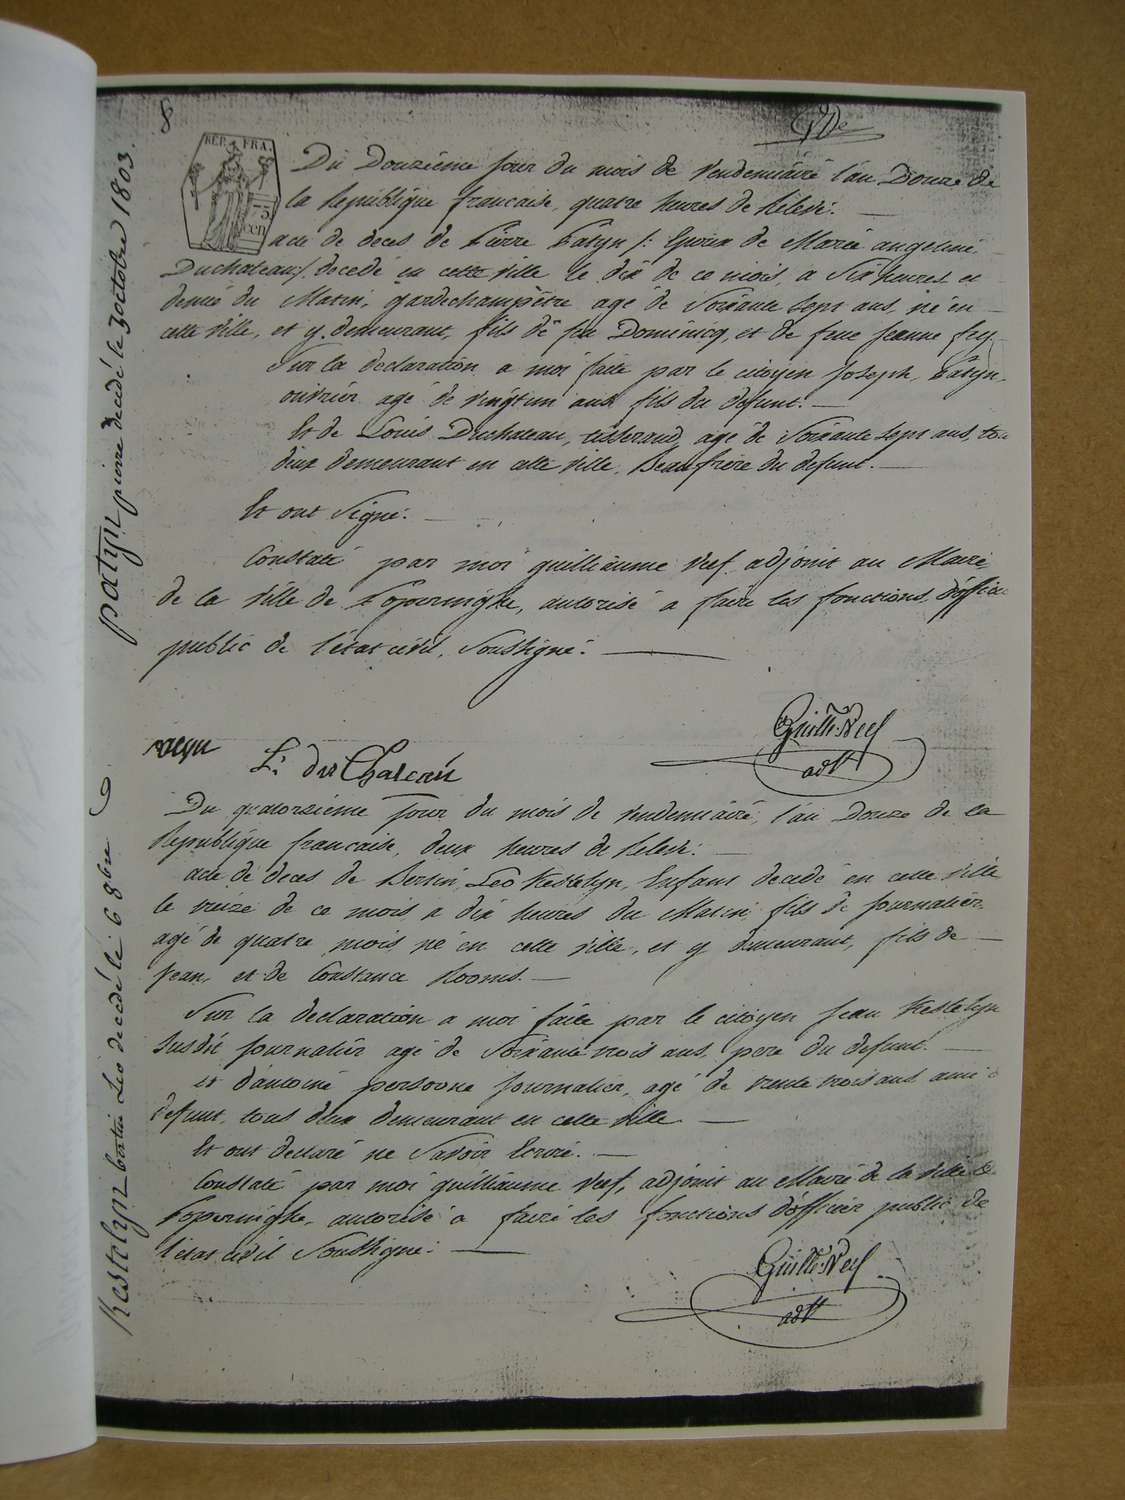 8
REP. FRA.
Du Douzième jour du mois de vendemiaire l'an Douze de
la Republique francaise, quatre heures de Relevé.
acte de deces de Pierre Patyn /: Epoux de Marie angeline
Duchateau /. decedé en cette ville le dix de ce mois, a Six heures et
demie du Matin, gardechampêtre agé de Soixante sept ans, né en
cette ville, et y demeurant, fils de feu Dominicq, et de feue Jeanne fey
Sur la declaration a moi faite par le citoyen Joseph Patyn
ouvrier agé de vingtun ans fils du defunt.
Et de Louis Duchateau, tisserand, agé de Soixante sept ans, tou
deux demeurant en cette ville, Beaufrère du defunt.
Et ont Signé.
Constaté par moi guilliaume Neef adjoint au Maire
de la ville de Poperinghe, autorisé a faire les fonctions d'offici
public de l'état civil, Soussigné.
L. du Chateau
Guill: Neef
adt
Du quatorzième jour du mois de vendemiaire, l'an Douze de la
Republique francaise, deux heures de Relevé.
acte de deces de Bertin Leo Kestelyn, Enfant decedé en cette ville
le treize de ce mois a dix heures du Matin fils de journalier
agé de quatre mois né en cette ville, et y demeurant, fils de
Jean, et de Constance Rooms.
Sur la declaration a moi faite par le citoyen Jean Kestelyn
Susdit journalier agé de Soixante trois ans, pere du defunt.
et d'antoine persoone journalier, agé de trente trois ans ami
defunt, tous deux demeurant en cette ville
Et ont declaré ne Savoir Ecrire.
Constaté par moi guilliaume Neef, adjoint au Maire de la ville de
Poperinghe, autorisé a faire les fonctions d'officier public de
l'etat civil Soussigné.
Guill: Neef
adt
patyn pierre decedé le 3 octobre 1803.
Kestelyn bertin Leo decedé le 6 8bre